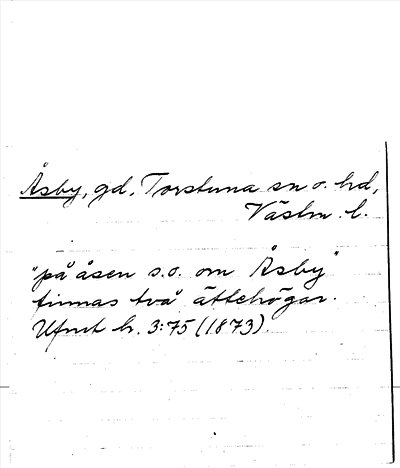 Åsby, gd, Torstuna sn o. hd,
Västm. l.
"på åsen s.o. om Åsby"
finnas två ättehögar.
Ufmt h. 3:75 (1873).